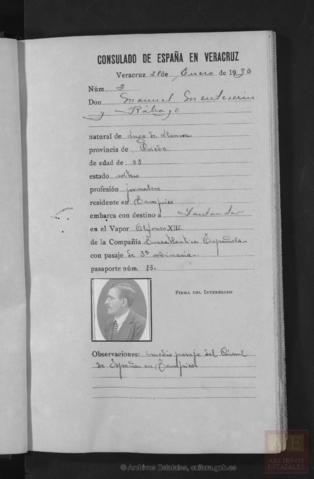 CONSULADO DE ESPAÑA EN VERACRUZ
Veracruz 21 de Enero de 1930
Núm 3
Don Manuel
y Rábago
natural de
provincia de
de edad de 38
estado soltero
profesión jornalero
residente en Tampico
embarca con destino a Santander
en el Vapor Alfonso XIII
de la Compañía Trasatlántica Española
con pasaje de 3ª ordinaria
pasaporte núm. 15.
FIRMA DEL INTERESADO
Observaciones: medio pasaje del Consul
de España en Tampico
ARCHIVOS
ESTATALES
© Archivos Estatales, cultura.gob.es